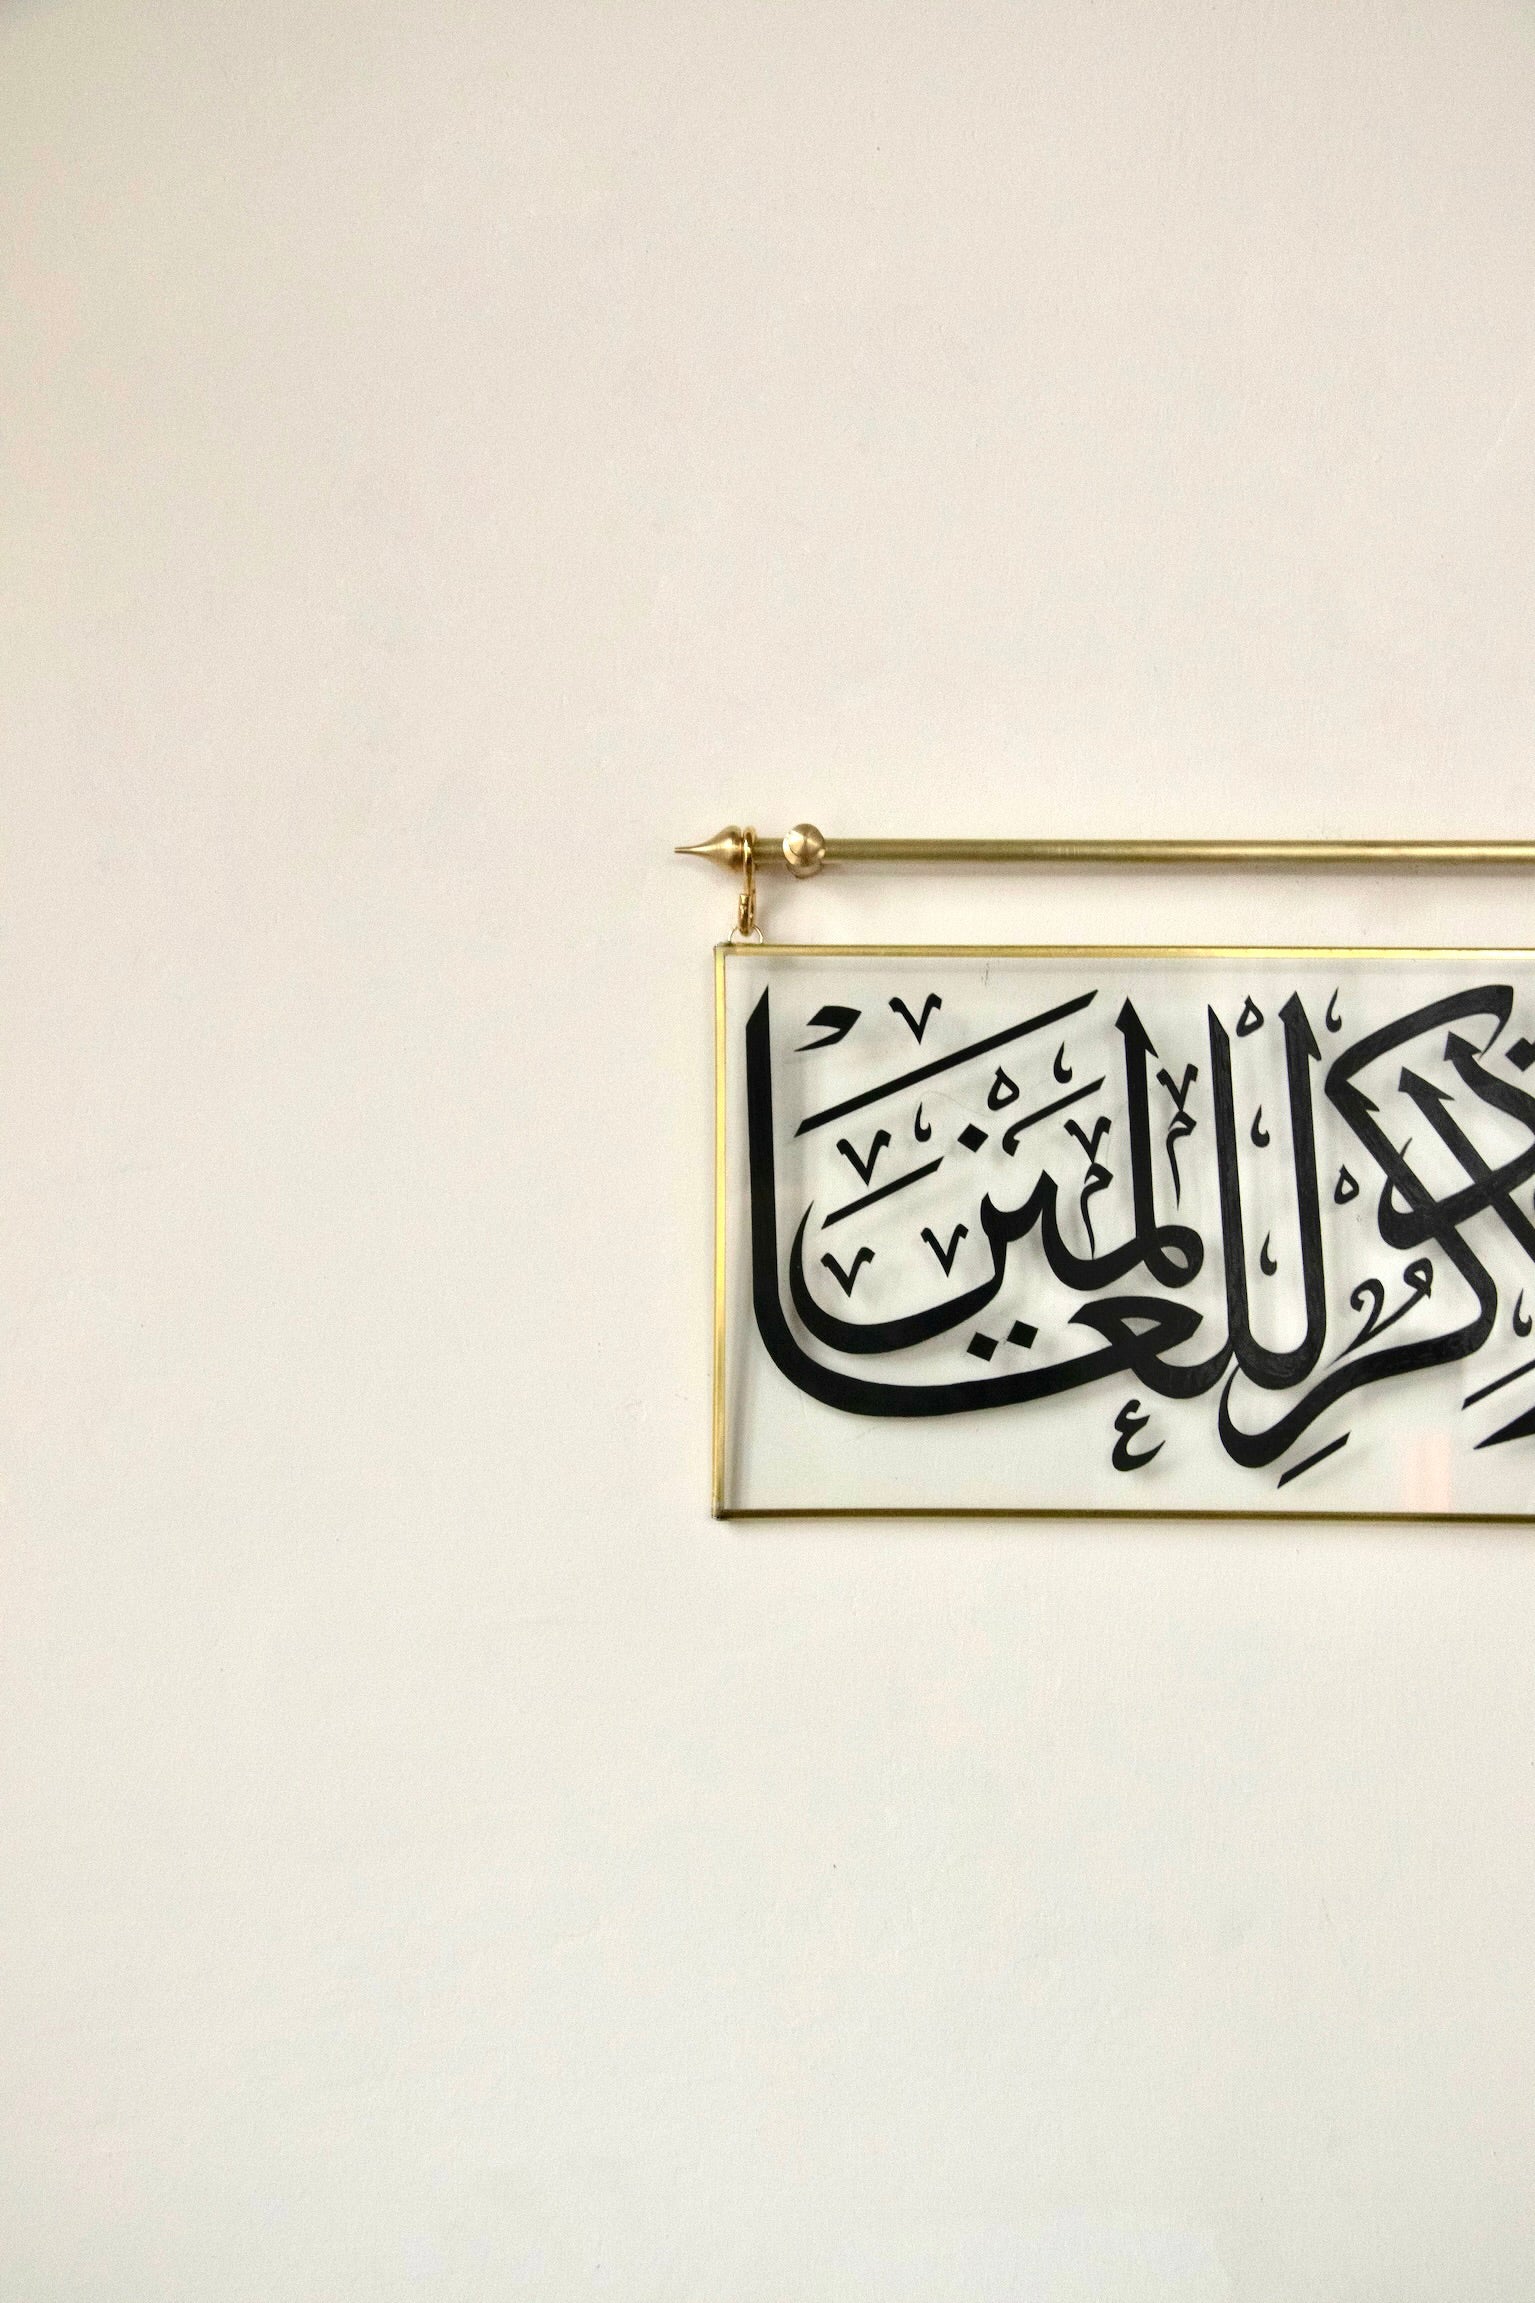 ذِكْرٌ لِلْعَالَمِينَ